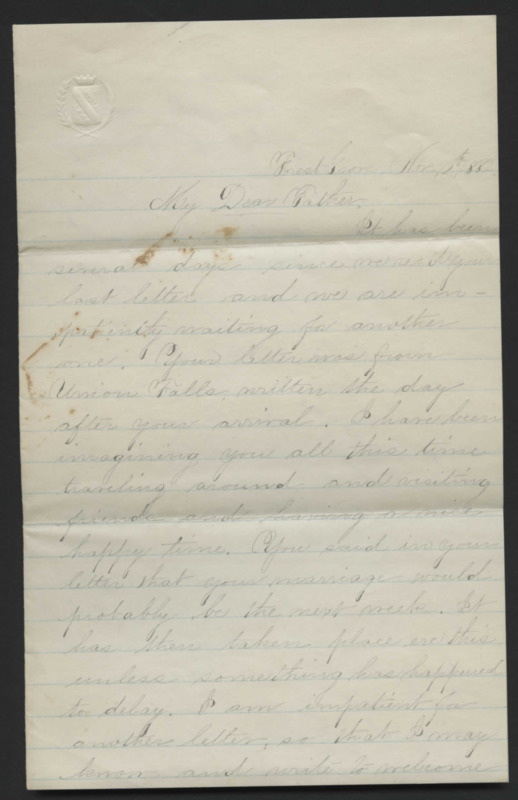 Forest Grove Nov. 1st, 85
My Dear Father,
It has been
several days since we rec'd your
last letter and we are im-
patiently waiting for another
one. Your letter was from
Union Falls, written the day
after your arrival. I have been
imagining you all this time
traveling around and visiting
friends and having a nice
happy time. You said in your
letter that your marriage would
probably be the next week. It
has then taken place ere this
unless something has happened
to delay. I am impatient for
another letter, so that I may
know and write to welcome